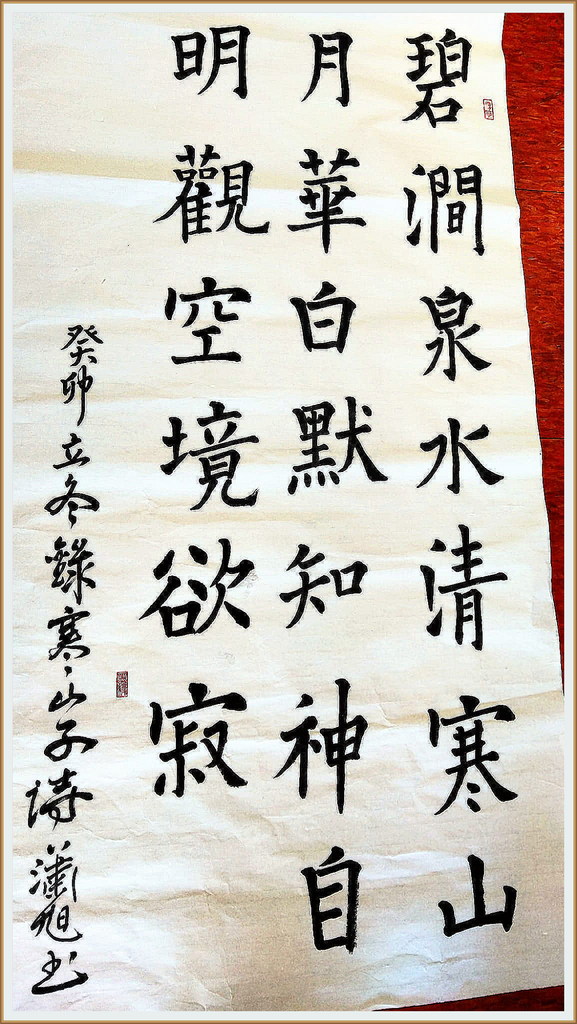 碧澗泉水清寒山
月華白默知神自
明觀空境欲寂
癸卯立冬錄寒山子詩瀟旭书